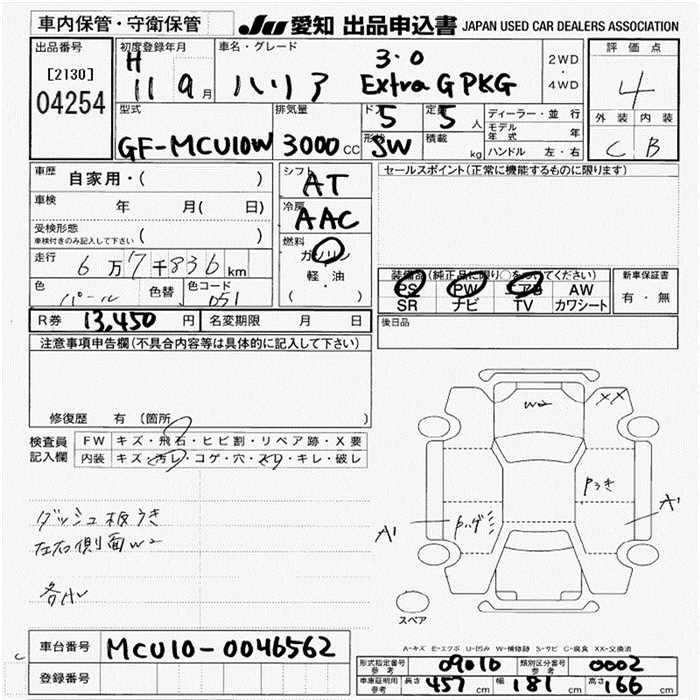 車内保管・守衛保管
JU 愛知 出品申込書 JAPAN USED CAR DEALERS ASSOCIATION
出品番号
[2130]
04254
初度登録年月
H
11 9月
車名・グレード
3.0
ハリア ExtraG PKG
2WD
・
4WD
評価点
4
外装 内装
C B
型式
GF-MCU10W
排気量
3000cc
ドア
5
定員
5人
形状
SW
積載
kg
ディーラー・並行
モデル年式 年
ハンドル 左・右
車歴
自家用・( )
車検
年 月( 日)
受検形態
車検付きのみ記入して下さい ( )
走行
6万7千836km
色
パール
色替
色コード
051
シフト
AT
冷房
AAC
燃料
ガソリン
軽・油
( ・ )
セールスポイント(正常に機能するものに限ります)
装備品(純正品に限り○をつけてください)
PS PW エアB AW
SR ナビ TV カワシート
新車保証書
有・無
後日品
R券 13,450円 名変期限 月 日
注意事項申告欄(不具合内容等は具体的に記入して下さい)
修復歴 有(箇所 )
検査員
記入欄
FW キズ・飛石・ヒビ割・リペア跡・X要
内装 キズ・汚レ・コゲ・穴・スレ・キレ・破レ
ダッシュ板うき
左右側面W2
各小
W2
XX
Pうき
Pハゲ
A1
A1
スペア
A-キズ E-エクボ U-凹み W-補修跡 S-サビ C-腐食 XX-交換済
車台番号 MCU10-0046562
登録番号
形式指定番号 参考 09010 類別区分番号 参考 0002
車庫証明用 参考 長さ 457cm 幅 181cm 高さ 166cm